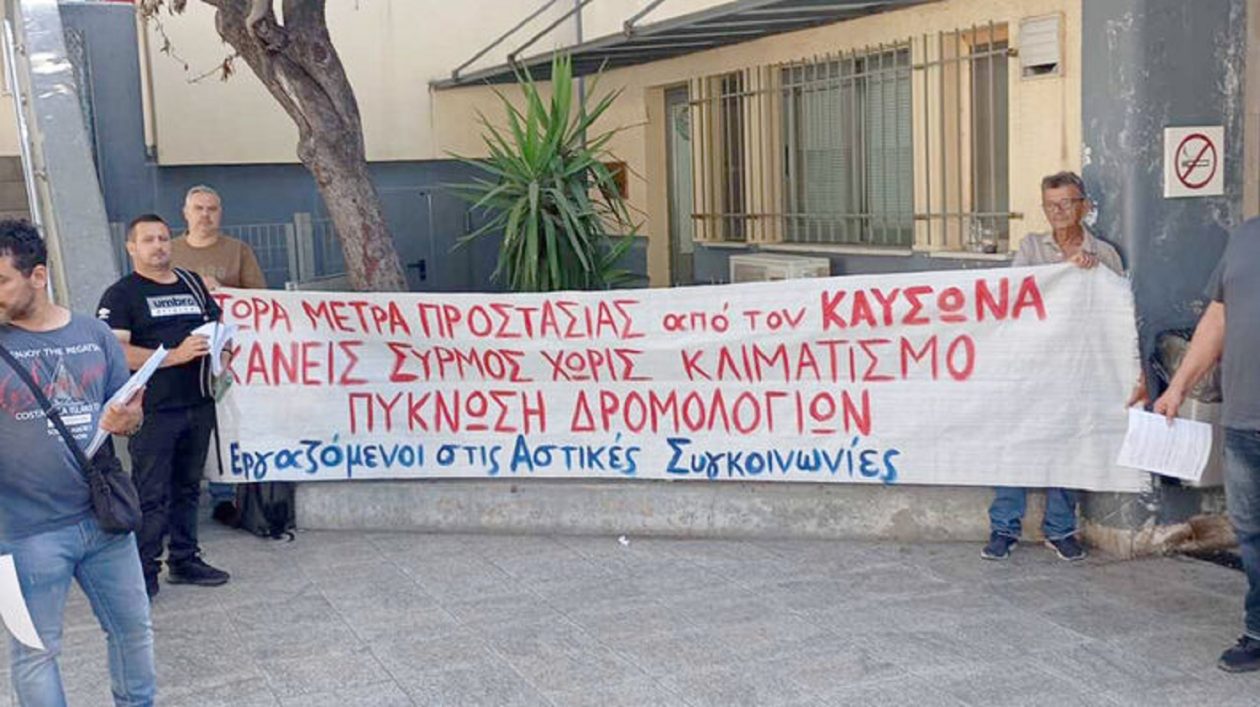 ΤΩΡΑ ΜΕΤΡΑ ΠΡΟΣΤΑΣΙΑΣ από τον ΚΑΥΣΩΝΑ
ΚΑΝΕΙΣ ΣΥΡΜΟΣ ΧΩΡΙΣ ΚΛΙΜΑΤΙΣΜΟ
ΠΥΚΝΩΣΗ ΔΡΟΜΟΛΟΓΙΩΝ
Εργαζόμενοι στις Αστικές Συγκοινωνίες
umbro
ENJOY THE REGATTA